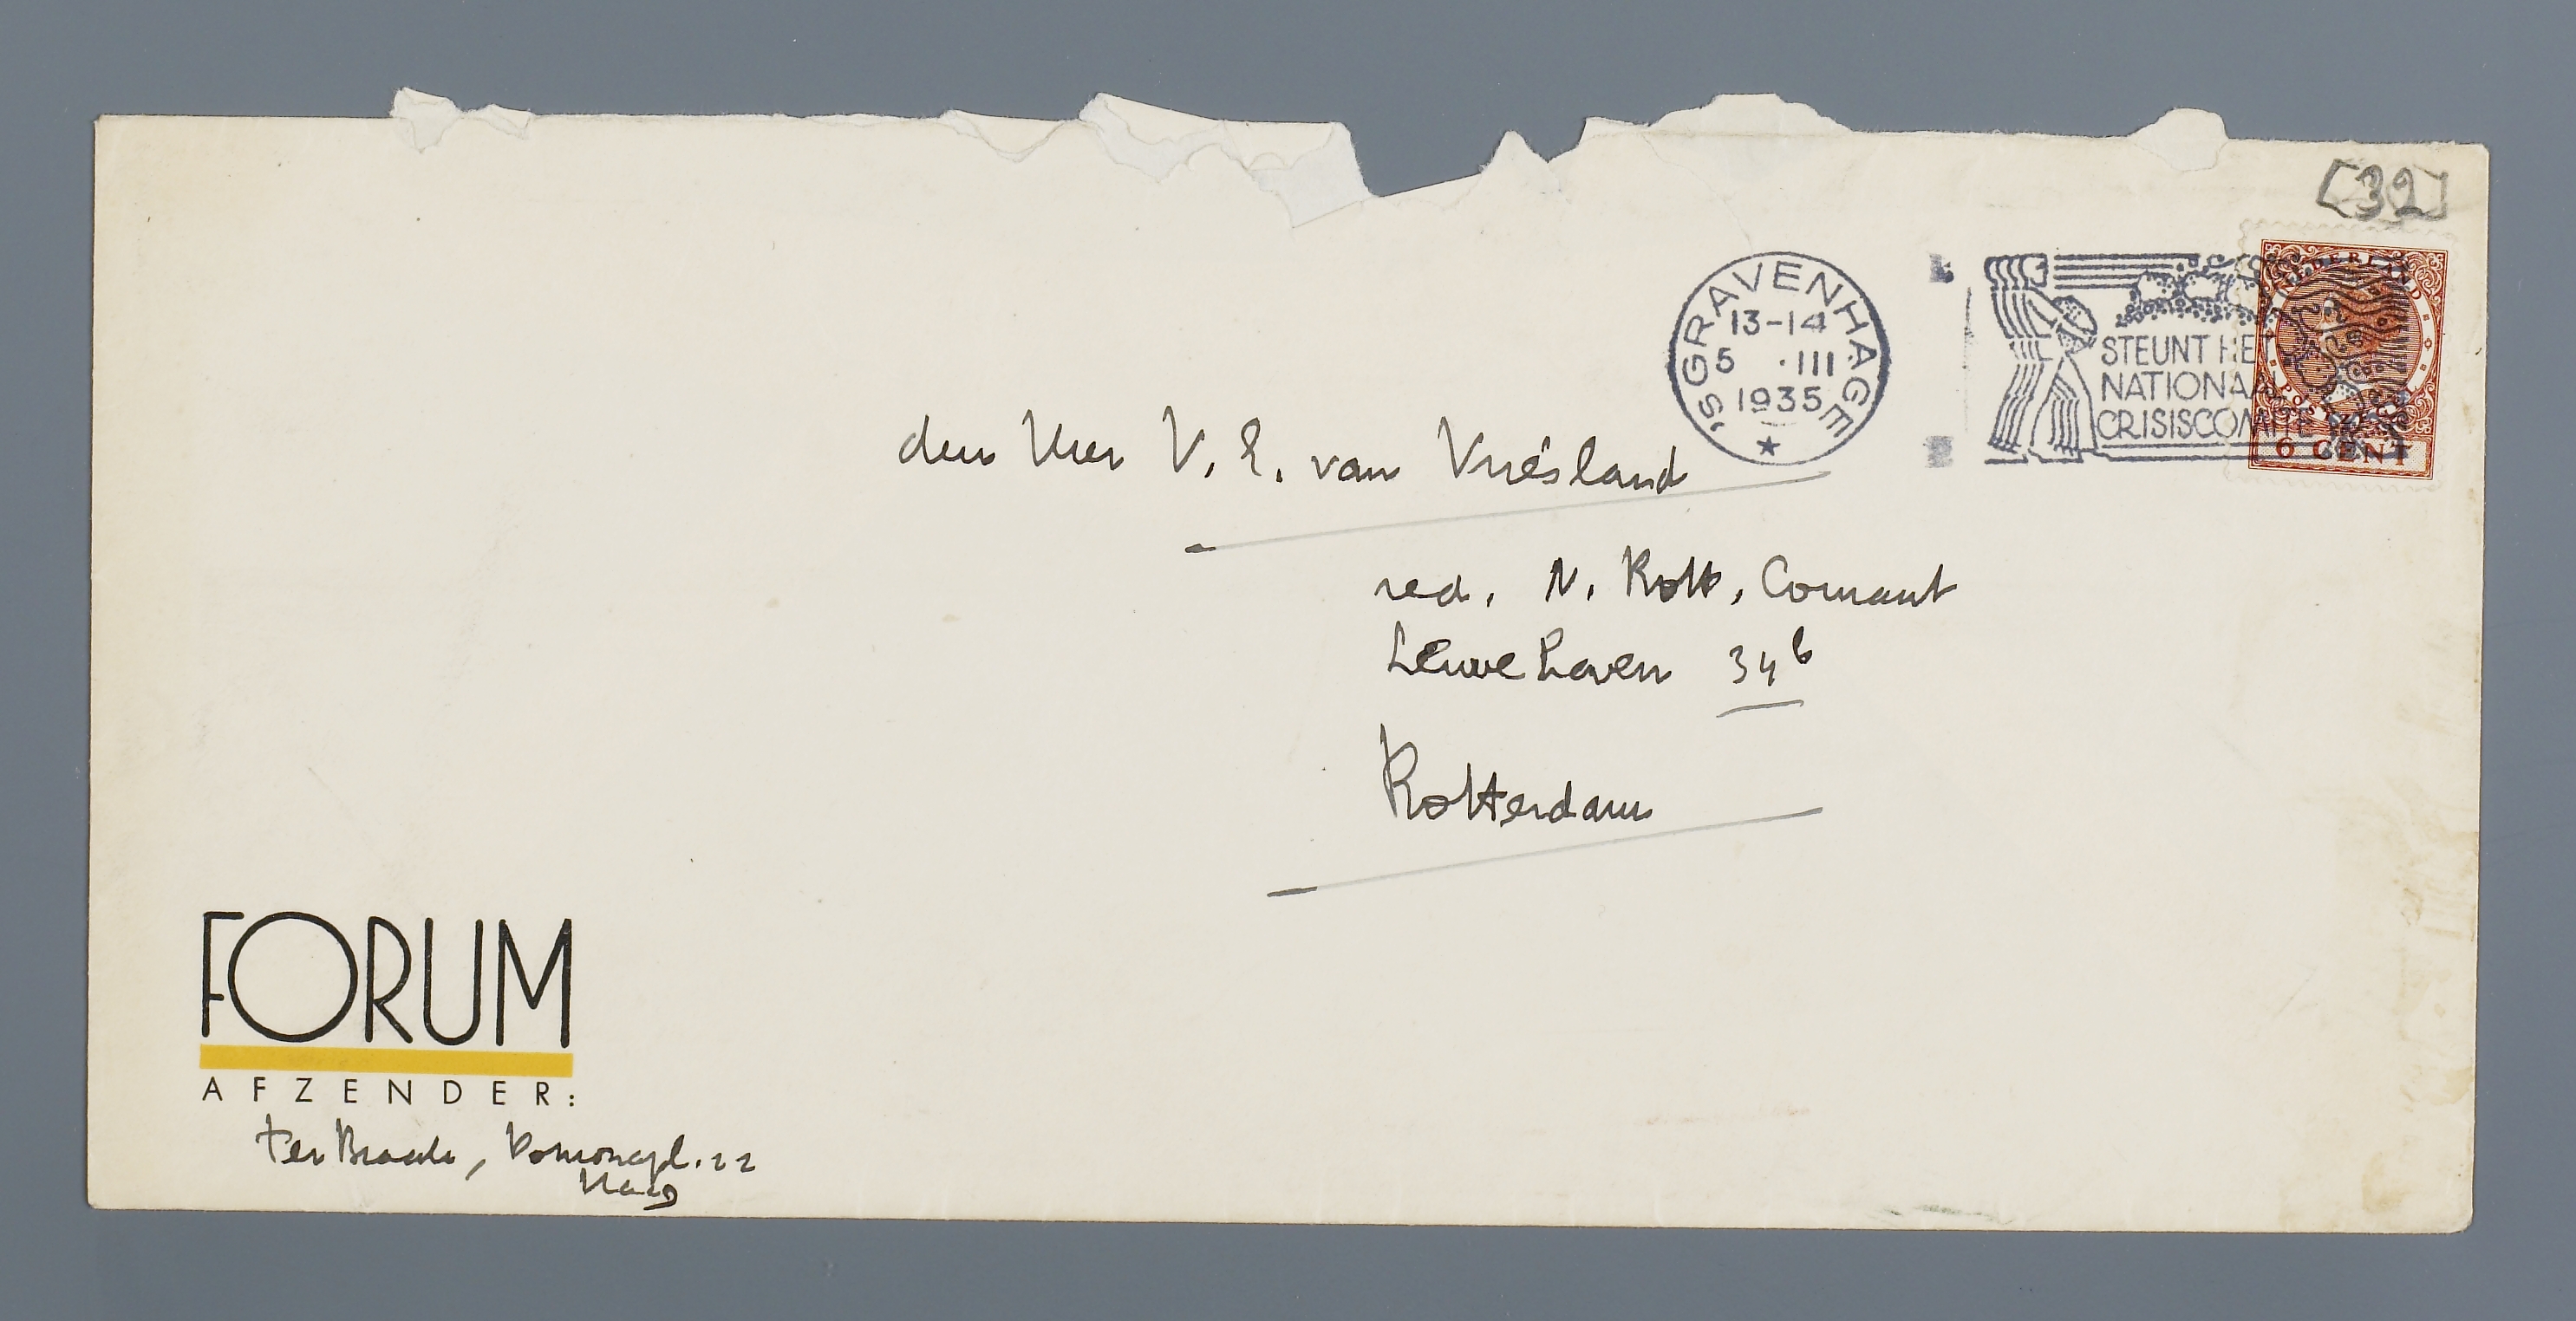 [32]
NEDERLAND
POSTZEGEL
6 CENT
'SGRAVENHAGE
13-14
5 ·III
1935
STEUNT HET
NATIONAAL
CRISISCOMITE
den Heer V. E. van Vriesland
red. N. Rott. Courant
Leuvehaven 34b
Rotterdam
FORUM
AFZENDER:
ter Braak, Pomonapl. 22
Haag